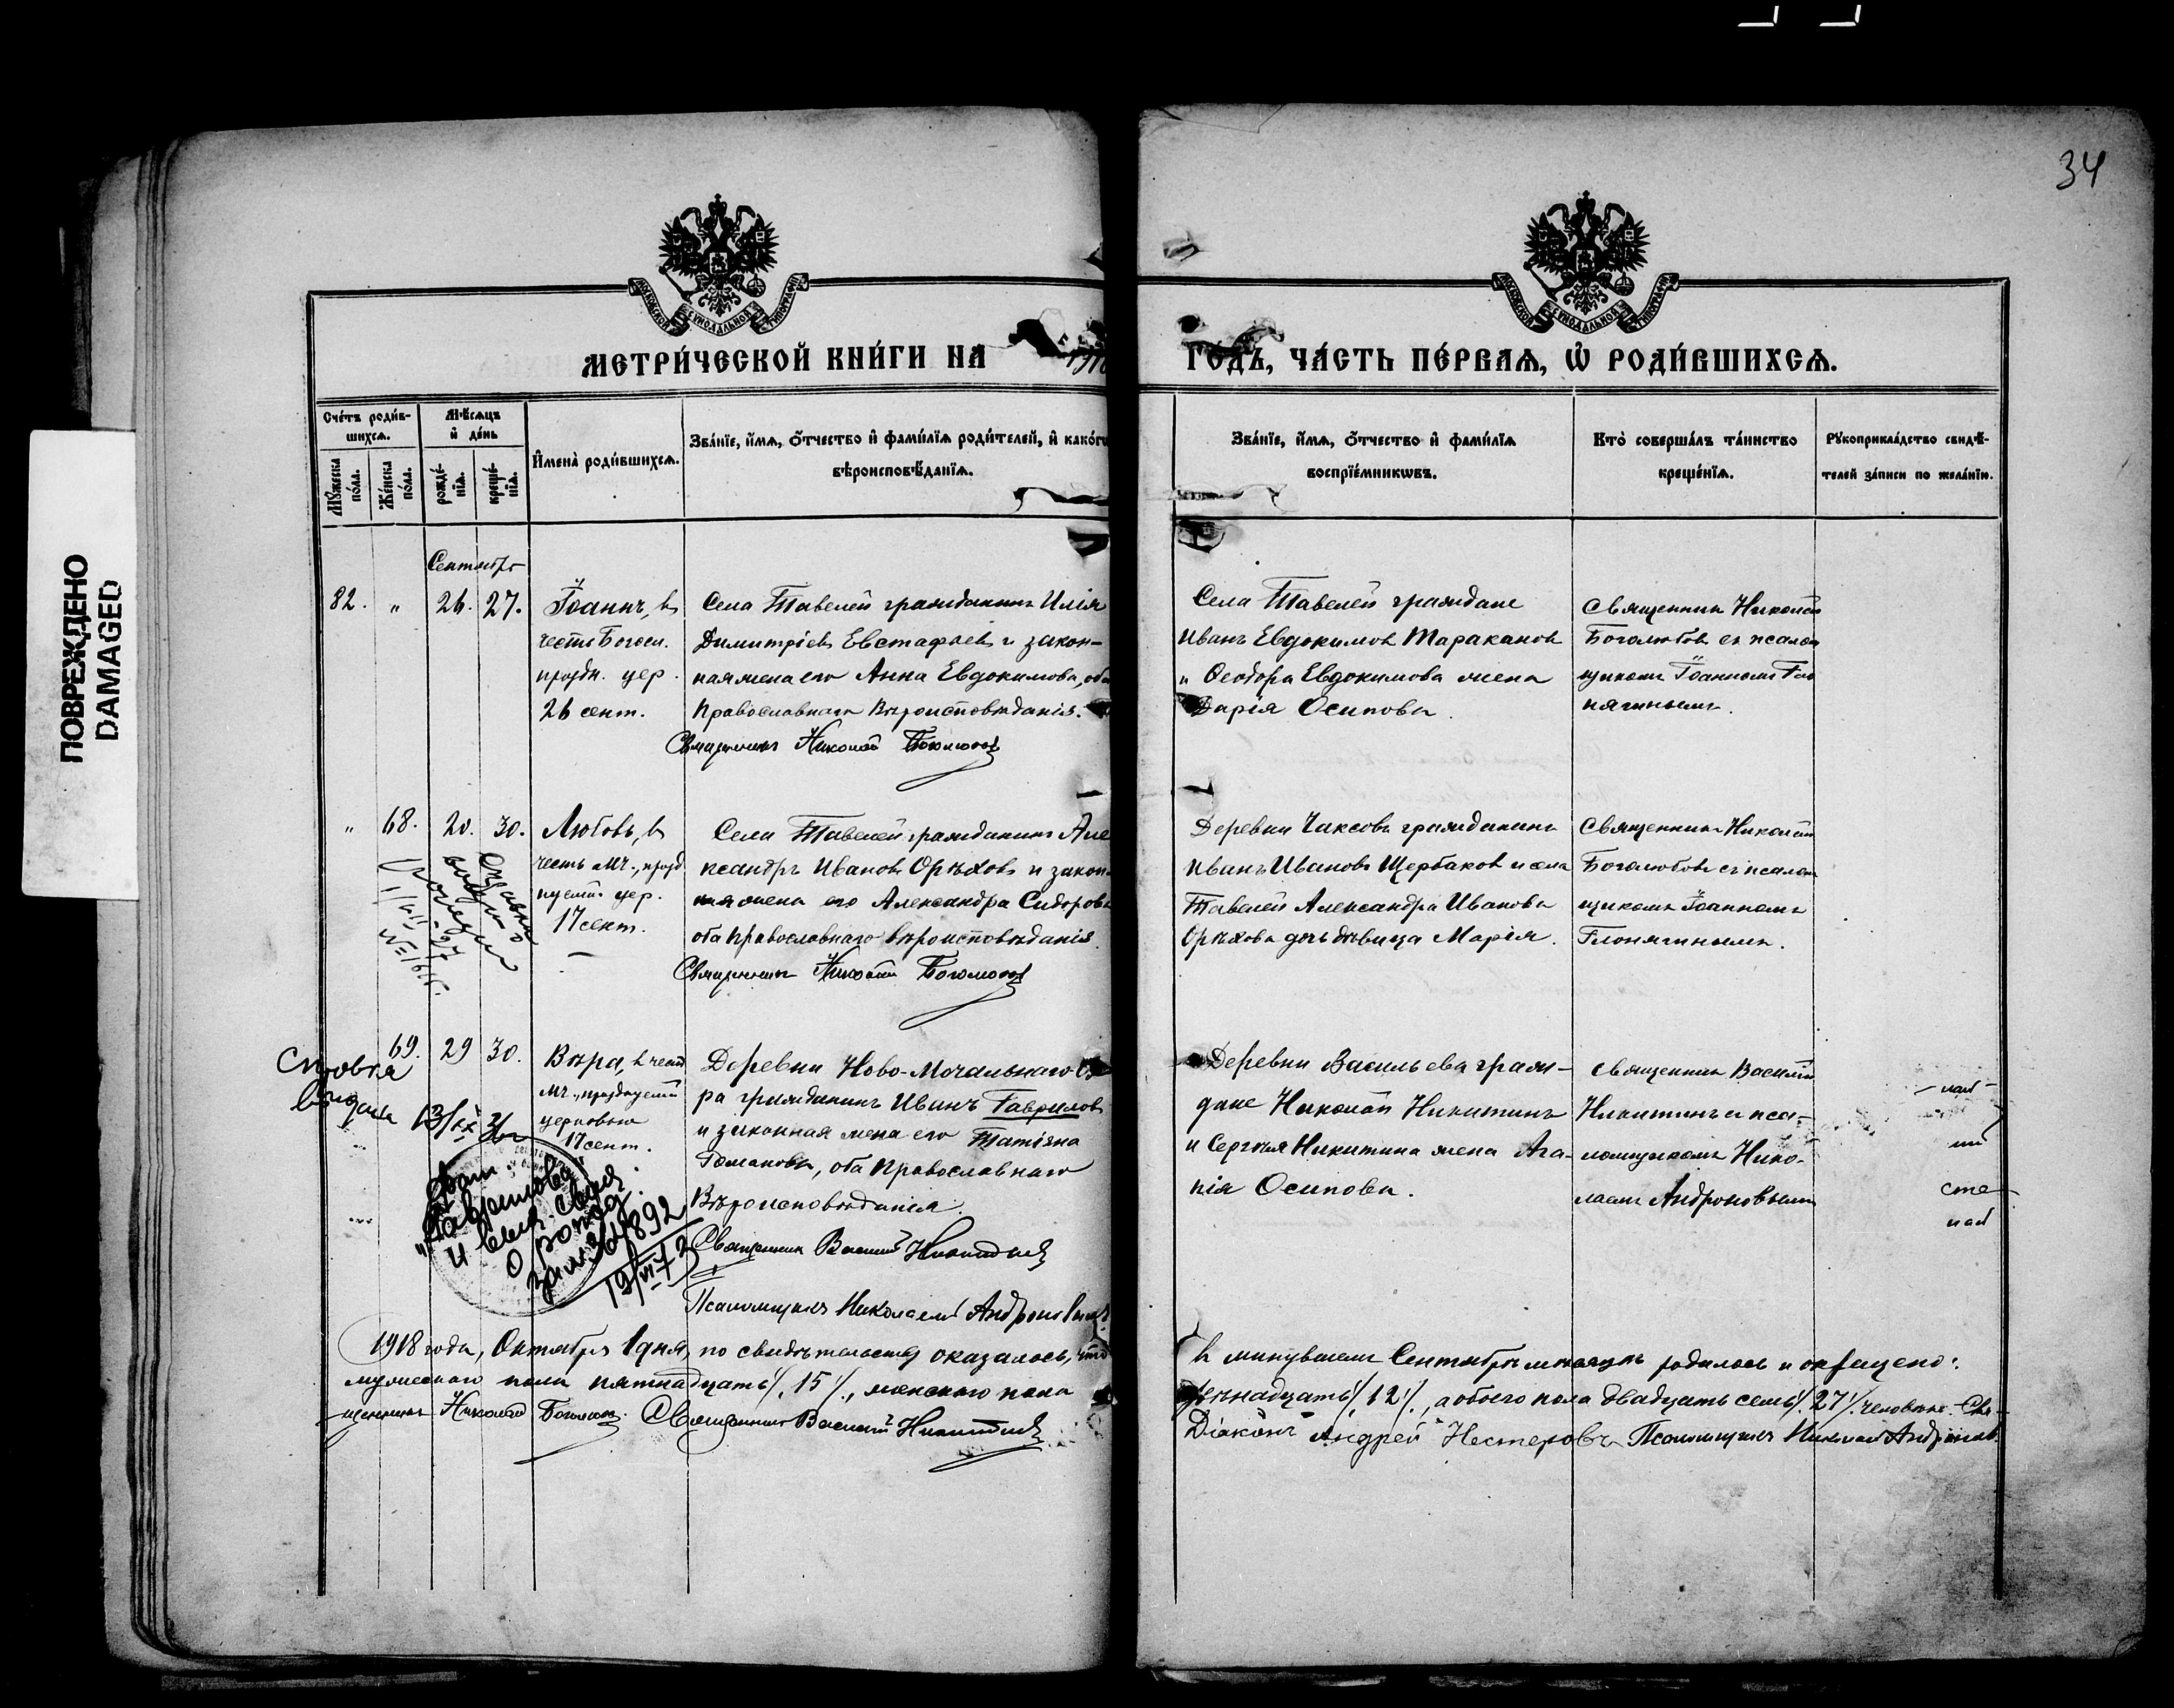 34
ПОВРЕЖДЕНО
DAMAGED
МОСКОВСКОЙ СѴНОДАЛЬНОЙ ТИПОГРАФІИ
МОСКОВСКОЙ СѴНОДАЛЬНОЙ ТИПОГРАФІИ
МЕТРИ́ЧЕСКОЙ КНИ́ГИ НА
ГОДЪ, ЧА́СТЬ ПЕ́РВАѦ, Ѡ҆ РОДИ́ВШИХСѦ.
Сче́тъ роди́в-
шихсѧ.
Мꙋ́жеска по́ла.
Же́нска по́ла.
Мѣ́сѧцъ
и҆ де́нь
рожде́-
нїѧ.
креще́-
нїѧ.
И҆мена̀ роди́вшихсѧ.
Зва́нїе, и҆́мѧ, ѻ҆́тчество и҆ фами́лїѧ роди́телей, и҆ како́гѡ
вѣроисповѣ́данїѧ.
Зва́нїе, и҆́мѧ, ѻ҆́тчество и҆ фами́лїѧ
воспрїе́мникѡвъ.
Кто̀ соверша́лъ та́инство
креще́нїѧ.
Рꙋкоприкла́дство свидѣ́-
телей за́писи по жела́нїю.
Сентябрь
82. " 26. 27.
Іоаннъ, въ
честь Богосл.
праздн. цер.
26 сент.
Села Тавелей гражданинъ Илія
Димитріевъ Евстафьевъ и закон-
ная жена его Анна Евдокимова, оба
Православнаго Вѣроисповѣданія.
Священникъ Николай Боголюбовъ
Села Тавелей граждане
Иванъ Евдокимовъ Таракановъ
и Ѳеодора Евдокимова жена
Дарія Осипова.
Священникъ Николай
Боголюбовъ съ псалом
щикомъ Іоанномъ Гло
нягинымъ.
" 68. 20. 30.
Любовь, въ
честь мч., празд
нуемой цер.
17 сент.
Села Тавелей гражданинъ Але
ксандръ Ивановъ Орѣховъ и закон
ная жена его Александра Сидорова
оба Православнаго вѣроисповѣданія.
Священникъ Николай Боголюбовъ
Деревни Чаксовъ гражданинъ
Иванъ Ивановъ Щербаковъ и села
Тавелей Александра Иванова
Орѣхова дочь дѣвица Марія.
Священникъ Николай
Боголюбовъ съ псалом
щикомъ Іоанномъ
Глонягинымъ.
Справка
выдана
69. 29 30.
Вѣра, въ честь
мч., празднуемой
церковью
17 сент.
Деревни Ново-Мочальнаго
ра гражданинъ Иванъ Гавриловъ
и законная жена его Татіана
Романова, оба Православнаго
Вѣроисповѣданія.
Священникъ Василій Никитинъ
Псаломщикъ Николай Андроновъ
о рожд.
19/VI-72
Деревни Васильева граж-
дане Николай Никитинъ
и Сергѣя Никитина жена Ага-
пія Осипова.
Священникъ Василій
Никитинъ съ пса-
ломщикомъ Нико-
лаемъ Андроновымъ
1918 года, Октября 1 дня, по свидѣтельству оказалось, что
въ минувшемъ Сентябрѣ мѣсяцѣ родилось и окрещено:
мужескаго пола пятнадцать /15/, женскаго пола
двѣнадцать /12/, а обоего пола двадцать семь /27/ человѣкъ. Свя-
щенникъ Николай Боголюбовъ. Священникъ Василій Никитинъ
Діаконъ Андрей Нестеровъ Псаломщикъ Николай Андроновъ.